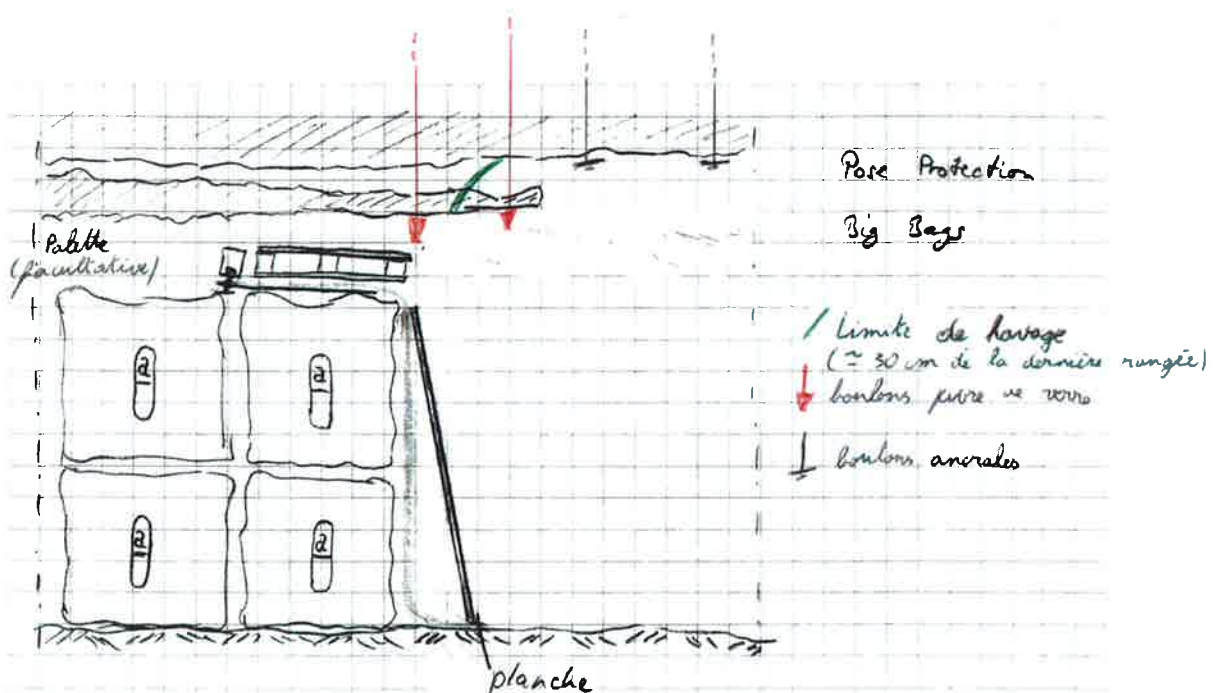 Pose Protection
Big Bags
Palette
(facultative)
a
a
a
a
Limite de havage
(≃ 30 cm de la dernière rangée)
boulons
boulons ancrales
planche